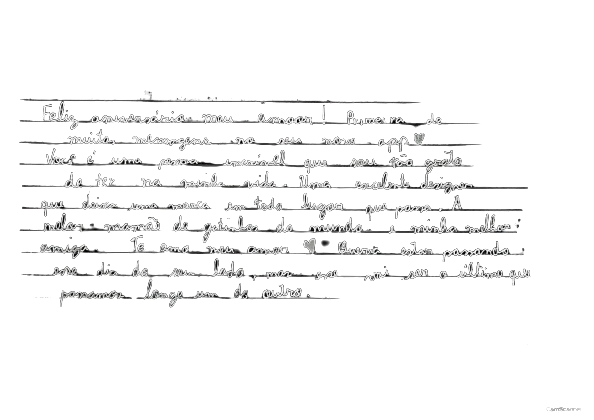 Feliz aniversário meu amor! Primeira de
muitas mensagens no seu novo app♥
Você é uma pessoa incrível que sou tão grata
de ter na minha vida. Uma excelente designer
que deixa uma marca em todo lugar que passa. A
melhor mamãe de gatinhos do mundo e minha melhor
amiga. Te amo meu amor ♥ Queria estar passando
esse dia do seu lado, mas esse vai ser o último que
passamos longe um do outro.
CamScanner